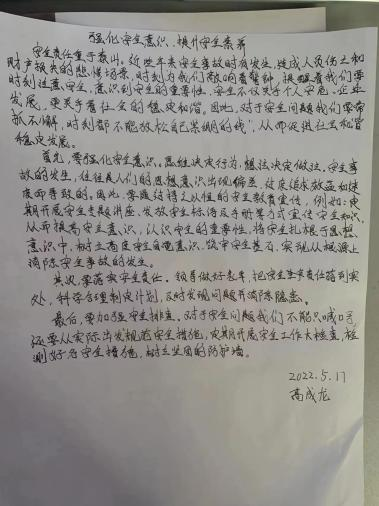 强化安全意识、提升安全素养
安全责任重于泰山。近些年来安全事故时有发生,造成人员伤亡和
财产损失的悲惨场景,时刻为我们敲响着警钟,提醒着我们要
时刻注意安全,意识到安全的重要性,安全不仅关乎个人安危、企业
发展,更关乎着社会的稳定和谐。因此,对于安全问题我们要常
抓不懈,时刻都不能放松自己紧绷的“线”,从而促进社会和谐
稳定发展。
首先,要强化安全意识。思维决定行为,想法决定做法,安全事
故的发生,往往是人们的思想意识出现偏差,放
度而导致的。因此,要通过将之以恒的安全教育宣传,例如:定
期开展安全专题讲座,发放安全标语及手册等方式宣传安全知识,
从而提高安全意识,认识安全的重要性,将安全扎根于思想
意识中,树立高度安全自觉意识,筑牢安全基石,实现从根源上
消除安全事故的发生。
其次,要落实安全责任。领导做好表率,把安全生产责任落到实
处,科学合理制定计划,及时发现问题并消除隐患。
最后,要加强安全排查。对于安全问题我们不能只喊口号,
还要从实际出发规范安全措施,定期开展安全工作大检查,检
测好各安全措施,树立坚固的防护墙。
2022.5.17
高成龙